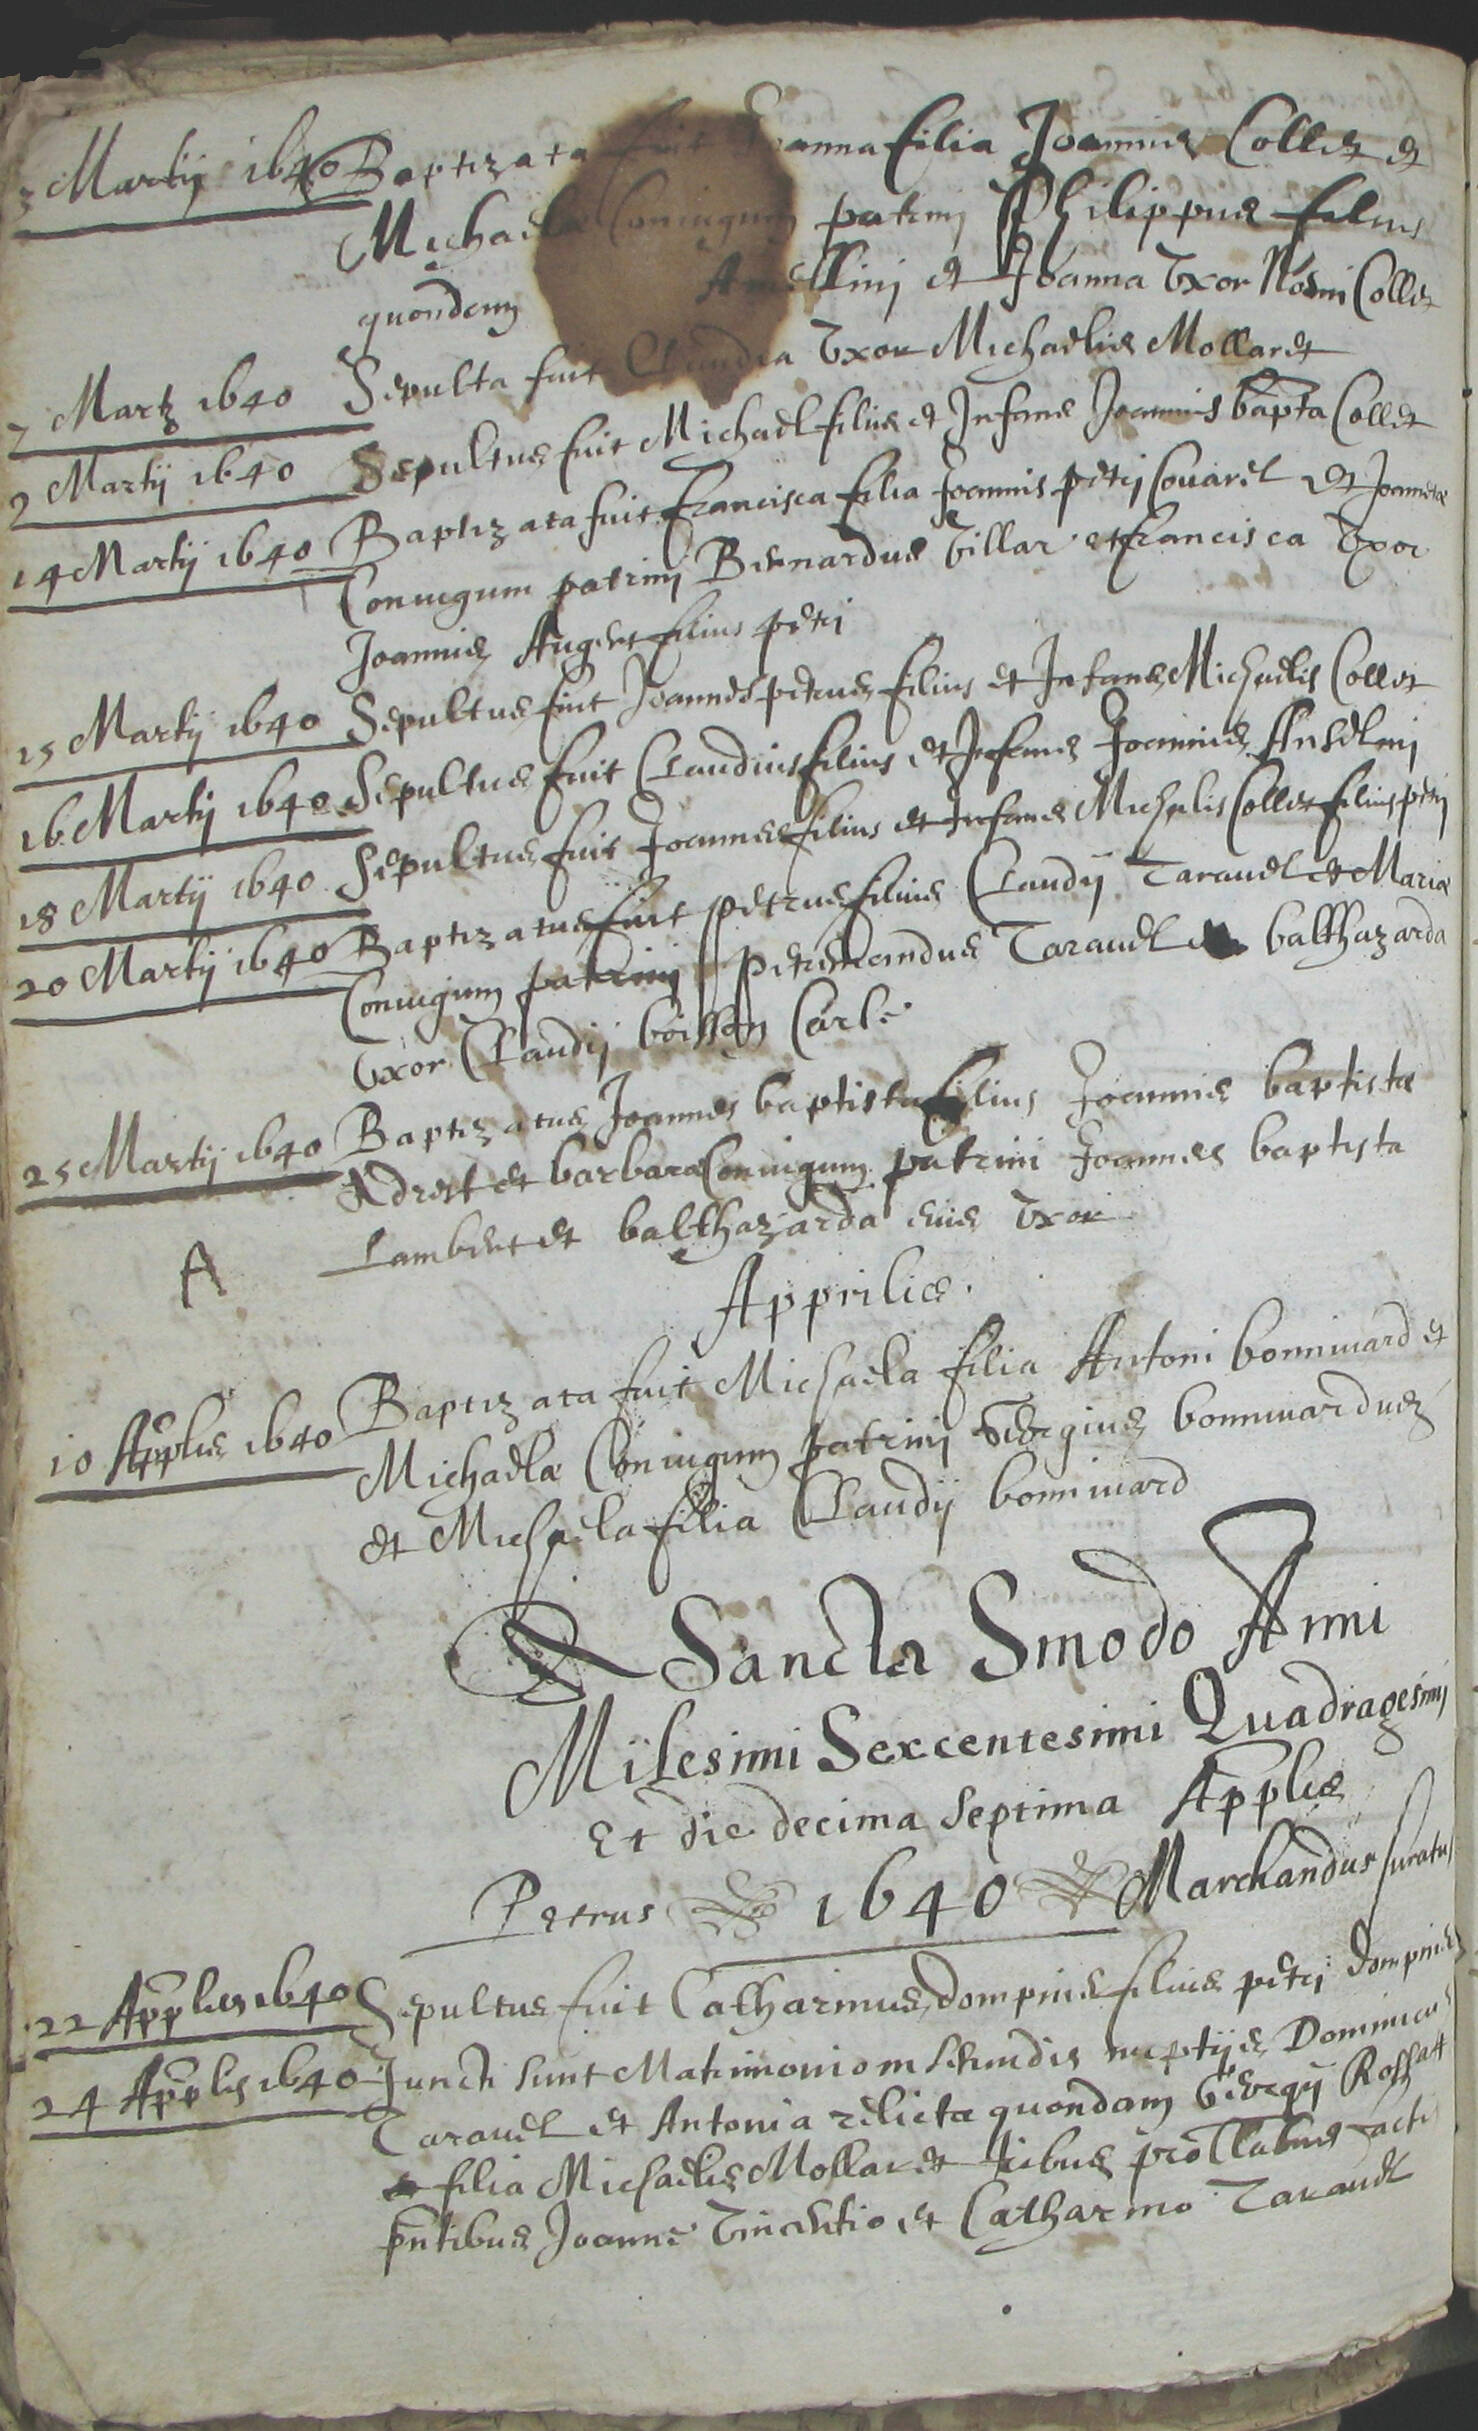 3 Martij 1640 Baptizata fuit Joanna filia Joannis Collet et
Michaelæ Coniugum patrini Philippus filius
quondam Anselmi et Joanna Uxor Collet
7 Martij 1640 Sepulta fuit Claudia Uxor Michaelis Mollaret
9 Martij 1640 Sepultus fuit Michael filius et Infans Joannis bapta Collet
14 Martij 1640 Baptizata fuit Francisca filia Joannis petri Couarel et Joannetæ
Coniugum patrini Bernardus Villar et Francisca Uxor
Joannis Augert filius petri
15 Martij 1640 Sepultus fuit Joannes petrus filius et Infans Michaelis Collet
16 Martij 1640 Sepultus fuit Claudius filius et Infans Joannis Anselmi
18 Martij 1640 Sepultus fuit Joannes filius et Infans Michaelis Collet filius petri
20 Martij 1640 Baptizatus fuit petrus filius Claudij Tarauel et Mariæ
Coniugum patrini petremandus Tarauel balthazarda
Uxor Claudij boisson Carle
25 Martij 1640 Baptizatus Joannes baptista filius Joannis baptistæ
Adret et barbaræ Coniugum patrini Joannes baptista
A Lambert et balthazarda eius Uxor
Apprilis.
10 Applis 1640 Baptizata fuit Michaela filia Antoni bonniuard et
Michaelæ Coniugum patrini Georgius bonniuardus
et Michaela filia Claudij bonniuard
Sancta Smodo Anni
Milesimi Sexcentesimi Quadragesimi
Et die decima Septima Applis
Petrus 1640 Marchandus Juratus
22 Applis 1640 Sepultus fuit Catharinus dompnis filius petri dompnis
24 Applis 1640 Juncti sunt Matrimonio in secundis nuptijs Dominicus
Tarauel et Antonia relicta quondam Georgij Rossat
filia Michaelis Mollaret tribus proclabus factis
pntibus Joanne Vincentio et Catharino Tarauel